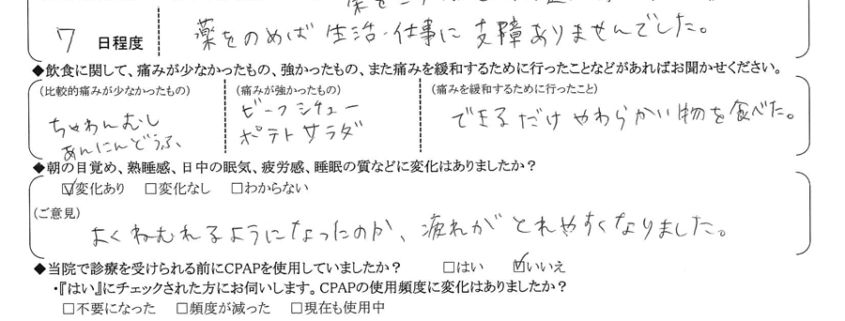 7 日程度
薬をのめば 生活・仕事に 支障ありませんでした。
◆飲食に関して、痛みが少なかったもの、強かったもの、また痛みを緩和するために行ったことなどがあればお聞かせください。
(比較的痛みが少なかったもの)
ちゃわんむし
あんにんどうふ、
(痛みが強かったもの)
ビーフシチュー
ポテトサラダ
(痛みを緩和するために行ったこと)
できるだけ やわらかい物を食べた。
◆朝の目覚め、熟睡感、日中の眠気、疲労感、睡眠の質などに変化はありましたか？
☑変化あり □変化なし □わからない
(ご意見)
よくねむれるようになったのか、疲れがとれやすくなりました。
◆当院で診療を受けられる前にCPAPを使用していましたか？ □はい ☑いいえ
・『はい』にチェックされた方にお伺いします。CPAPの使用頻度に変化はありましたか？
□不要になった □頻度が減った □現在も使用中